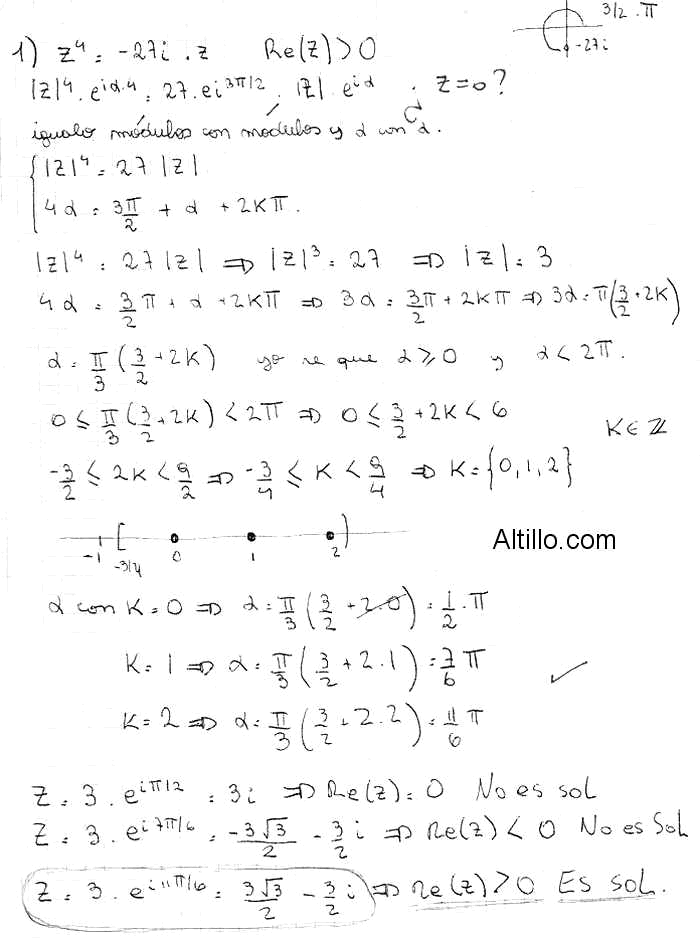 3/2 . π
-27i
1) z⁴ = -27i . z Re(z) > 0
|z|⁴ . e^{iα.4} = 27 . e^{i3π/2} . |z| . e^{iα} . z=0?
igualo módulos con módulos y α con α.
{ |z|⁴ = 27 |z|
4α = 3π/2 + α + 2Kπ.
|z|⁴ = 27 |z| ⇒ |z|³ = 27 ⇒ |z| = 3
4α = 3/2 π + α + 2Kπ ⇒ 3α = 3/2 π + 2Kπ ⇒ 3α = π(3/2 + 2K)
α = π/3 (3/2 + 2K) yo se que α ≥ 0 y α < 2π.
0 ≤ π/3 (3/2 + 2K) < 2π ⇒ 0 ≤ 3/2 + 2K < 6 K ∈ ℤ
-3/2 ≤ 2K < 9/2 ⇒ -3/4 ≤ K < 9/4 ⇒ K = {0,1,2}
Altillo.com
-1 -3/4 0 1 2
α con K = 0 ⇒ α = π/3 (3/2 + 2.0) = 1/2 . π
K = 1 ⇒ α = π/3 (3/2 + 2.1) = 7/6 π
K = 2 ⇒ α = π/3 (3/2 + 2.2) = 11/6 π
z = 3 . e^{iπ/2} = 3i ⇒ Re(z) = 0 No es sol
z = 3 . e^{i7π/6} = -3√3/2 - 3/2 i ⇒ Re(z) < 0 No es Sol
z = 3 . e^{i11π/6} = 3√3/2 - 3/2 i ⇒ Re(z) > 0 Es Sol.